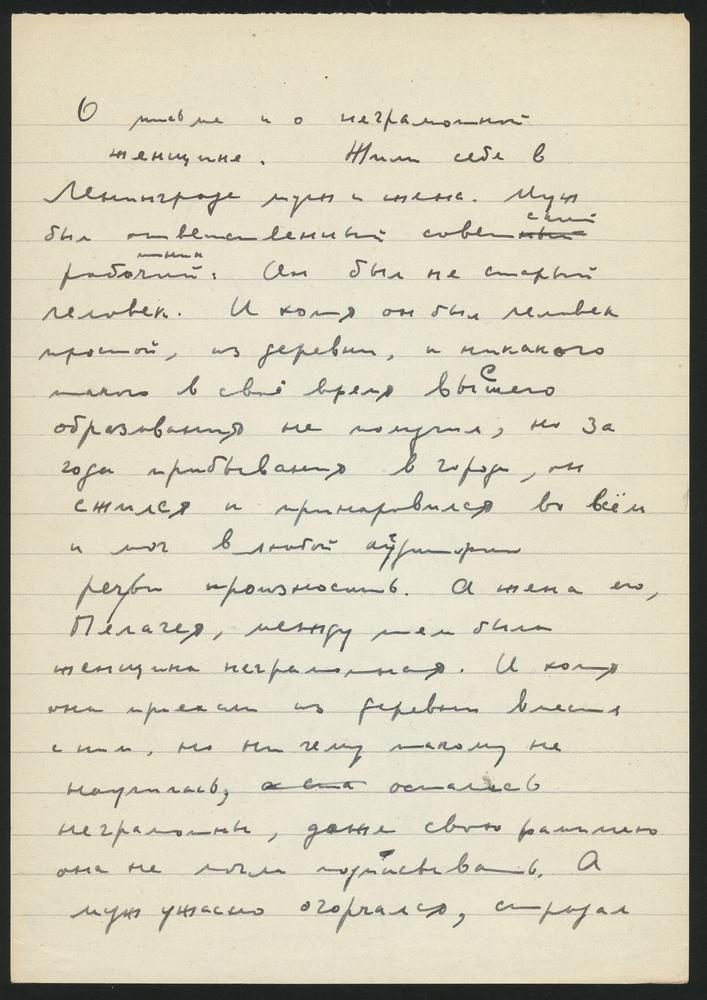 О письме и о неграмотной
женщине. Жили себе в
Ленинграде муж и жена. Муж
был ответственный советский
работник. Он был не старый
человек. И хотя он был человек
простой, из деревни, и никакого
такого в своё время высшего
образования не получил, но за
года прибывания в городе, он
сжился и принаровился во всём
и мог в любой аудитории
речи произносить. А жена его,
Пелагея, между тем была
женщина неграмотная. И хотя
она приехали из деревни вместе
с ним, но ни чему такому не
научилась, осталась
неграмотны, даже свою фамилию
она не могла подписывать. А
муж ужасно огорчался, страдал